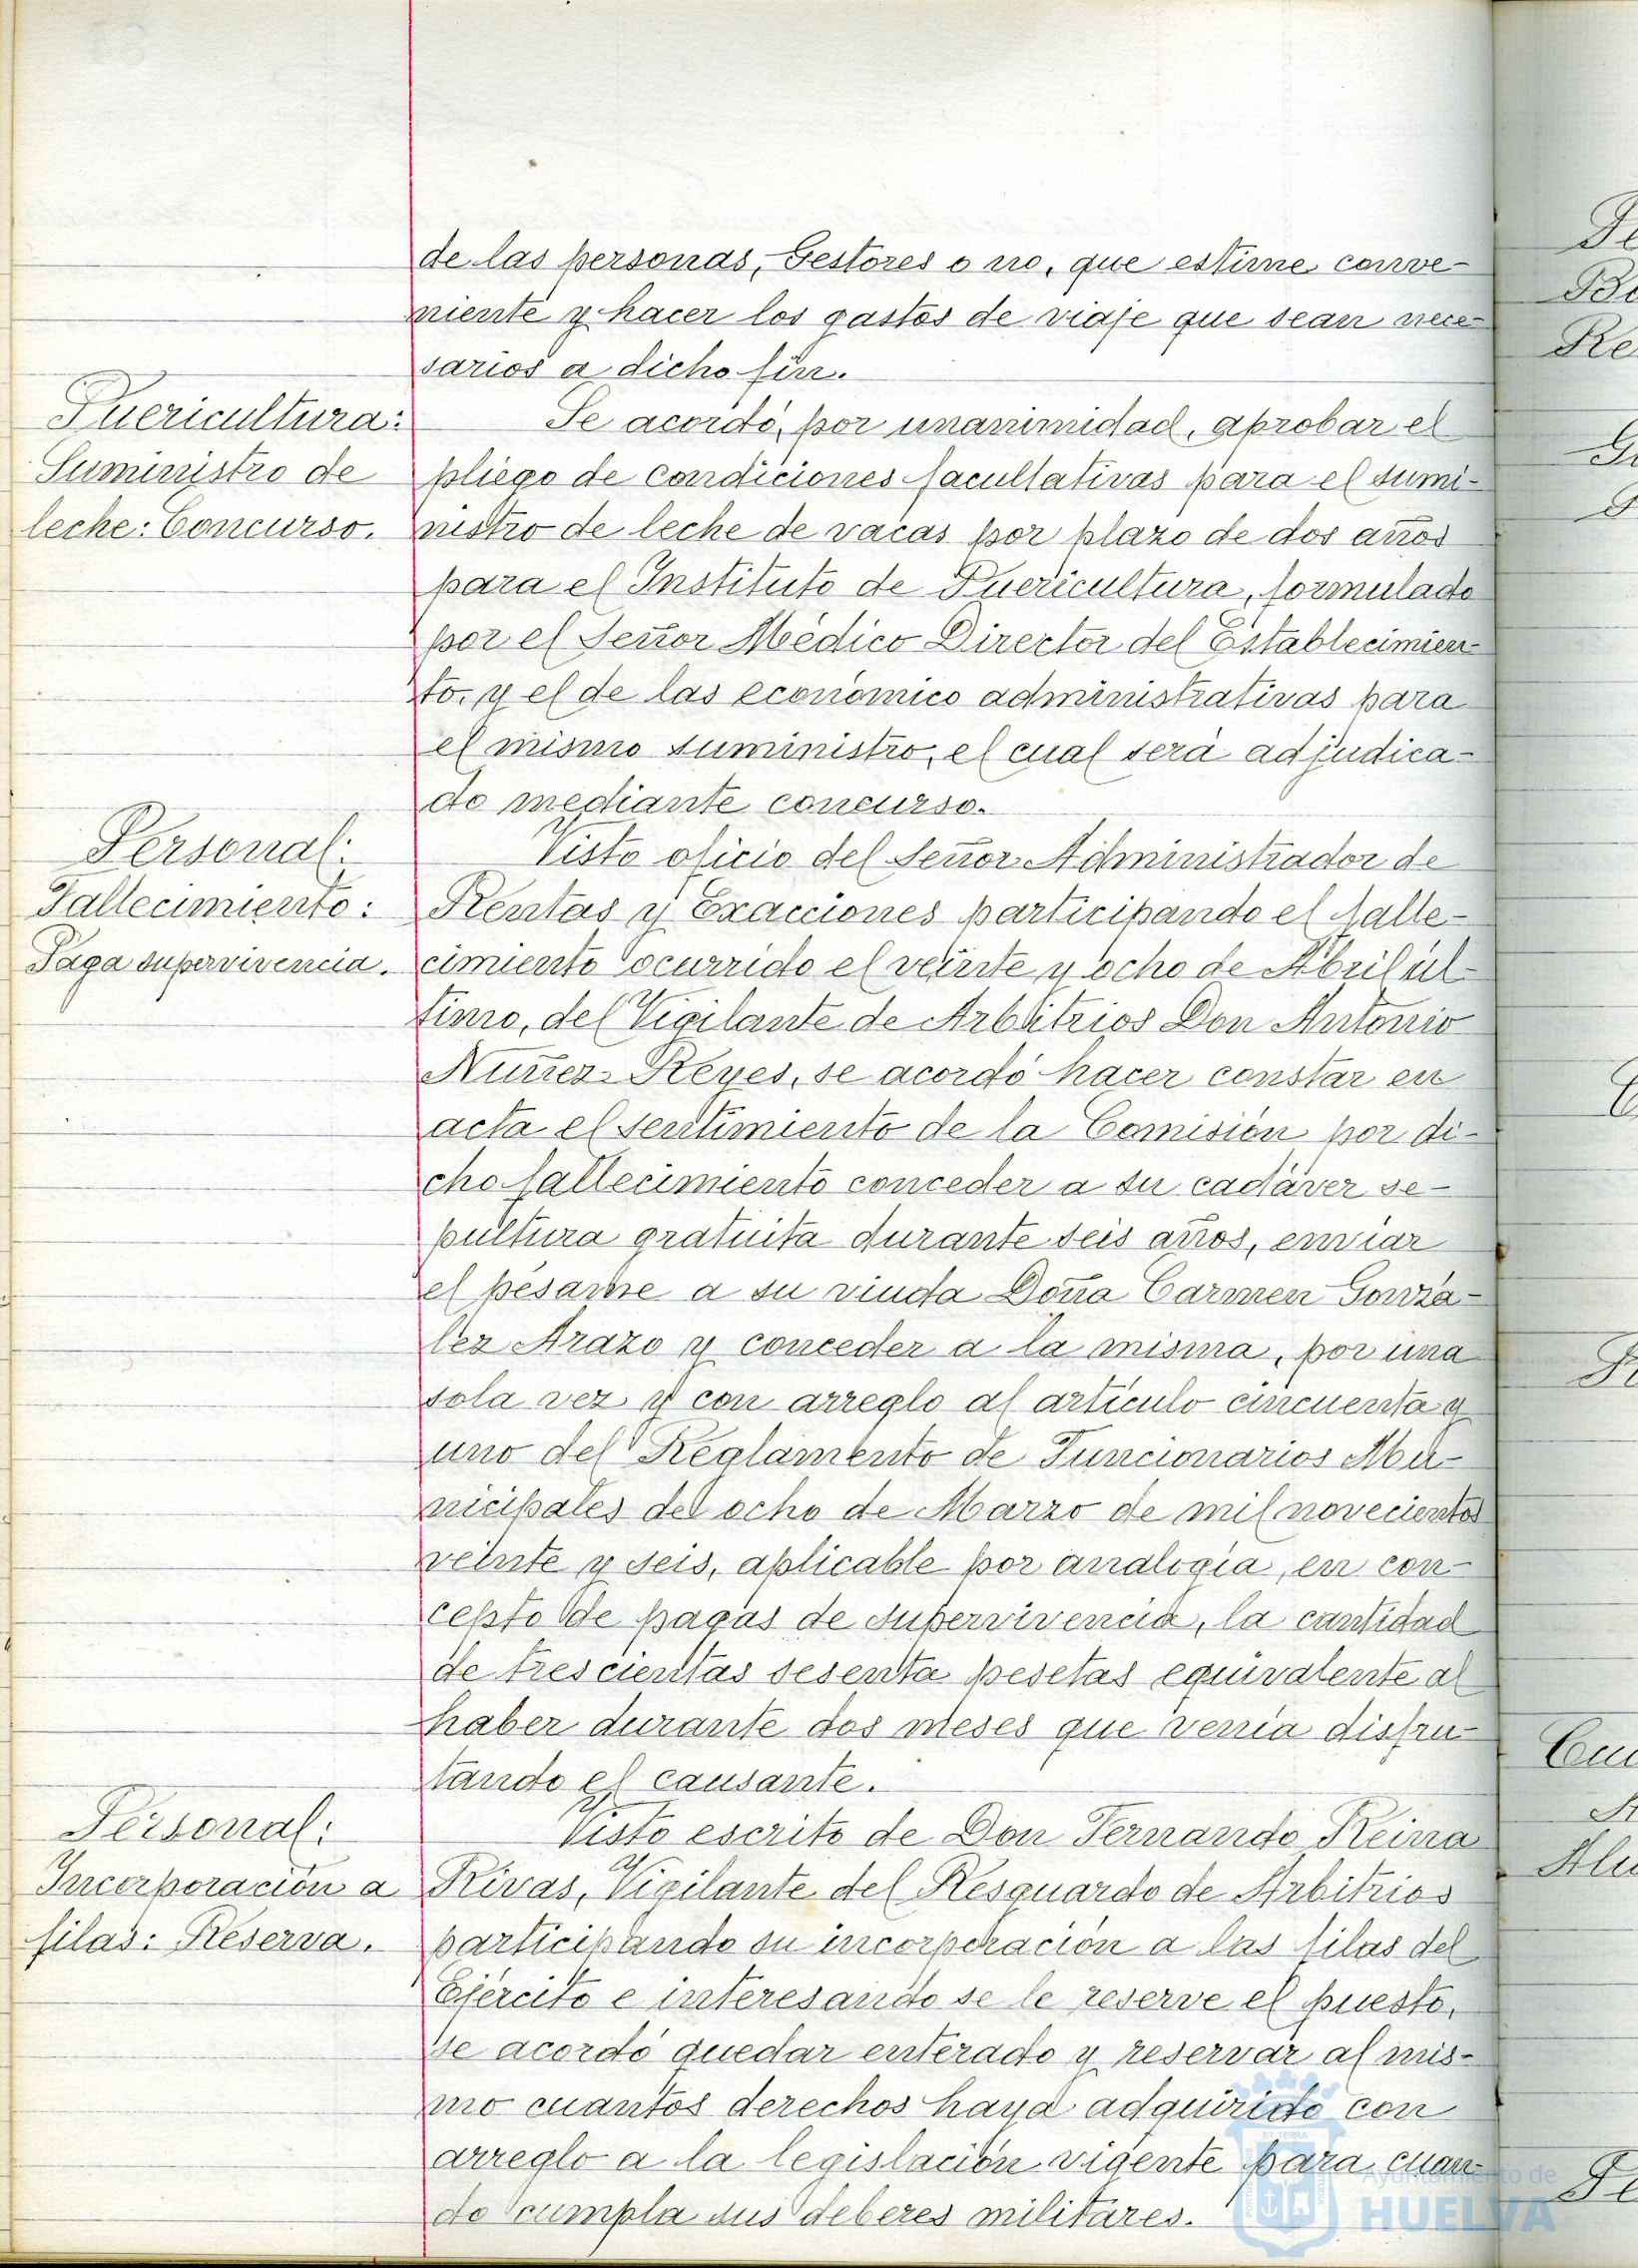 de las personas, Gestores o no, que estime conve-
niente y hacer los gastos de viaje que sean nece-
sarios a dicho fin.
Puericultura:
Suministro de
leche: Concurso.
Se acordó, por unanimidad, aprobar el
pliego de condiciones facultativas para el sumi-
nistro de leche de vacas por plazo de dos años
para el Instituto de Puericultura, formulado
por el Señor Médico Director del Establecimien-
to, y el de las económico administrativas para
el mismo suministro, el cual será adjudica-
do mediante concurso.
Personal:
Fallecimiento:
Paga supervivencia.
Visto oficio del Señor Administrador de
Rentas y Exacciones participando el falle-
cimiento ocurrido el veinte y ocho de Abril úl-
timo, del Vigilante de Arbitrios Don Antonio
Nuñez Reyes, se acordó hacer constar en
acta el sentimiento de la Comisión por di-
cho fallecimiento conceder a su cadáver se-
pultura gratuita durante seis años, enviar
el pésame a su viuda Doña Carmen Gonzá-
lez Arazo y conceder a la misma, por una
sola vez y con arreglo al artículo cincuenta y
uno del Reglamento de Funcionarios Mu-
nicipales del ocho de Marzo de mil novecientos
veinte y seis, aplicable por analogía, en con-
cepto de pagas de supervivencia, la cantidad
de trescientas sesenta pesetas equivalente al
haber durante dos meses que venía disfru-
tando el causante.
Personal:
Incorporación a
filas: Reserva.
Visto escrito de Don Fernando Reina
Rivas, Vigilante del Resguardo de Arbitrios
participando su incorporación a las filas del
Ejército e interesando se le reserve el puesto,
se acordó quedar enterado y reservar al mis-
mo cuantos derechos haya adquirido con
arreglo a la legislación vigente para cuan-
do cumpla sus deberes militares.
Ayuntamiento de
HUELVA